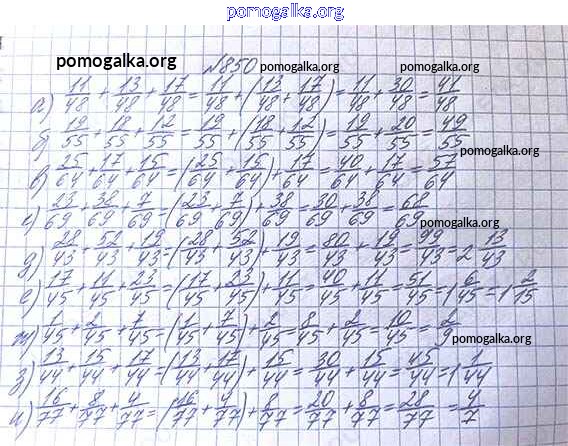 pomogalka.org
pomogalka.org №850 pomogalka.org pomogalka.org
а) 11/48 + 13/48 + 17/48 = 11/48 + (13/48 + 17/48) = 11/48 + 30/48 = 41/48
б) 19/55 + 18/55 + 12/55 = 19/55 + (18/55 + 12/55) = 19/55 + 20/55 = 49/55
pomogalka.org
в) 25/64 + 17/64 + 15/64 = (25/64 + 15/64) + 17/64 = 40/64 + 17/64 = 57/64
г) 23/69 + 38/69 + 7/69 = (23/69 + 7/69) + 38/69 = 30/69 + 38/69 = 68/69
pomogalka.org
д) 28/43 + 52/43 + 19/43 = (28/43 + 52/43) + 19/43 = 80/43 + 19/43 = 99/43 = 2 13/43
е) 17/45 + 11/45 + 23/45 = (17/45 + 23/45) + 11/45 = 40/45 + 11/45 = 51/45 = 1 6/45 = 1 2/15
ж) 1/45 + 2/45 + 7/45 = (1/45 + 7/45) + 2/45 = 8/45 + 2/45 = 10/45 = 2/9
pomogalka.org
з) 13/44 + 15/44 + 17/44 = (13/44 + 17/44) + 15/44 = 30/44 + 15/44 = 45/44 = 1 1/44
и) 16/77 + 8/77 + 4/77 = (16/77 + 4/77) + 8/77 = 20/77 + 8/77 = 28/77 = 4/7